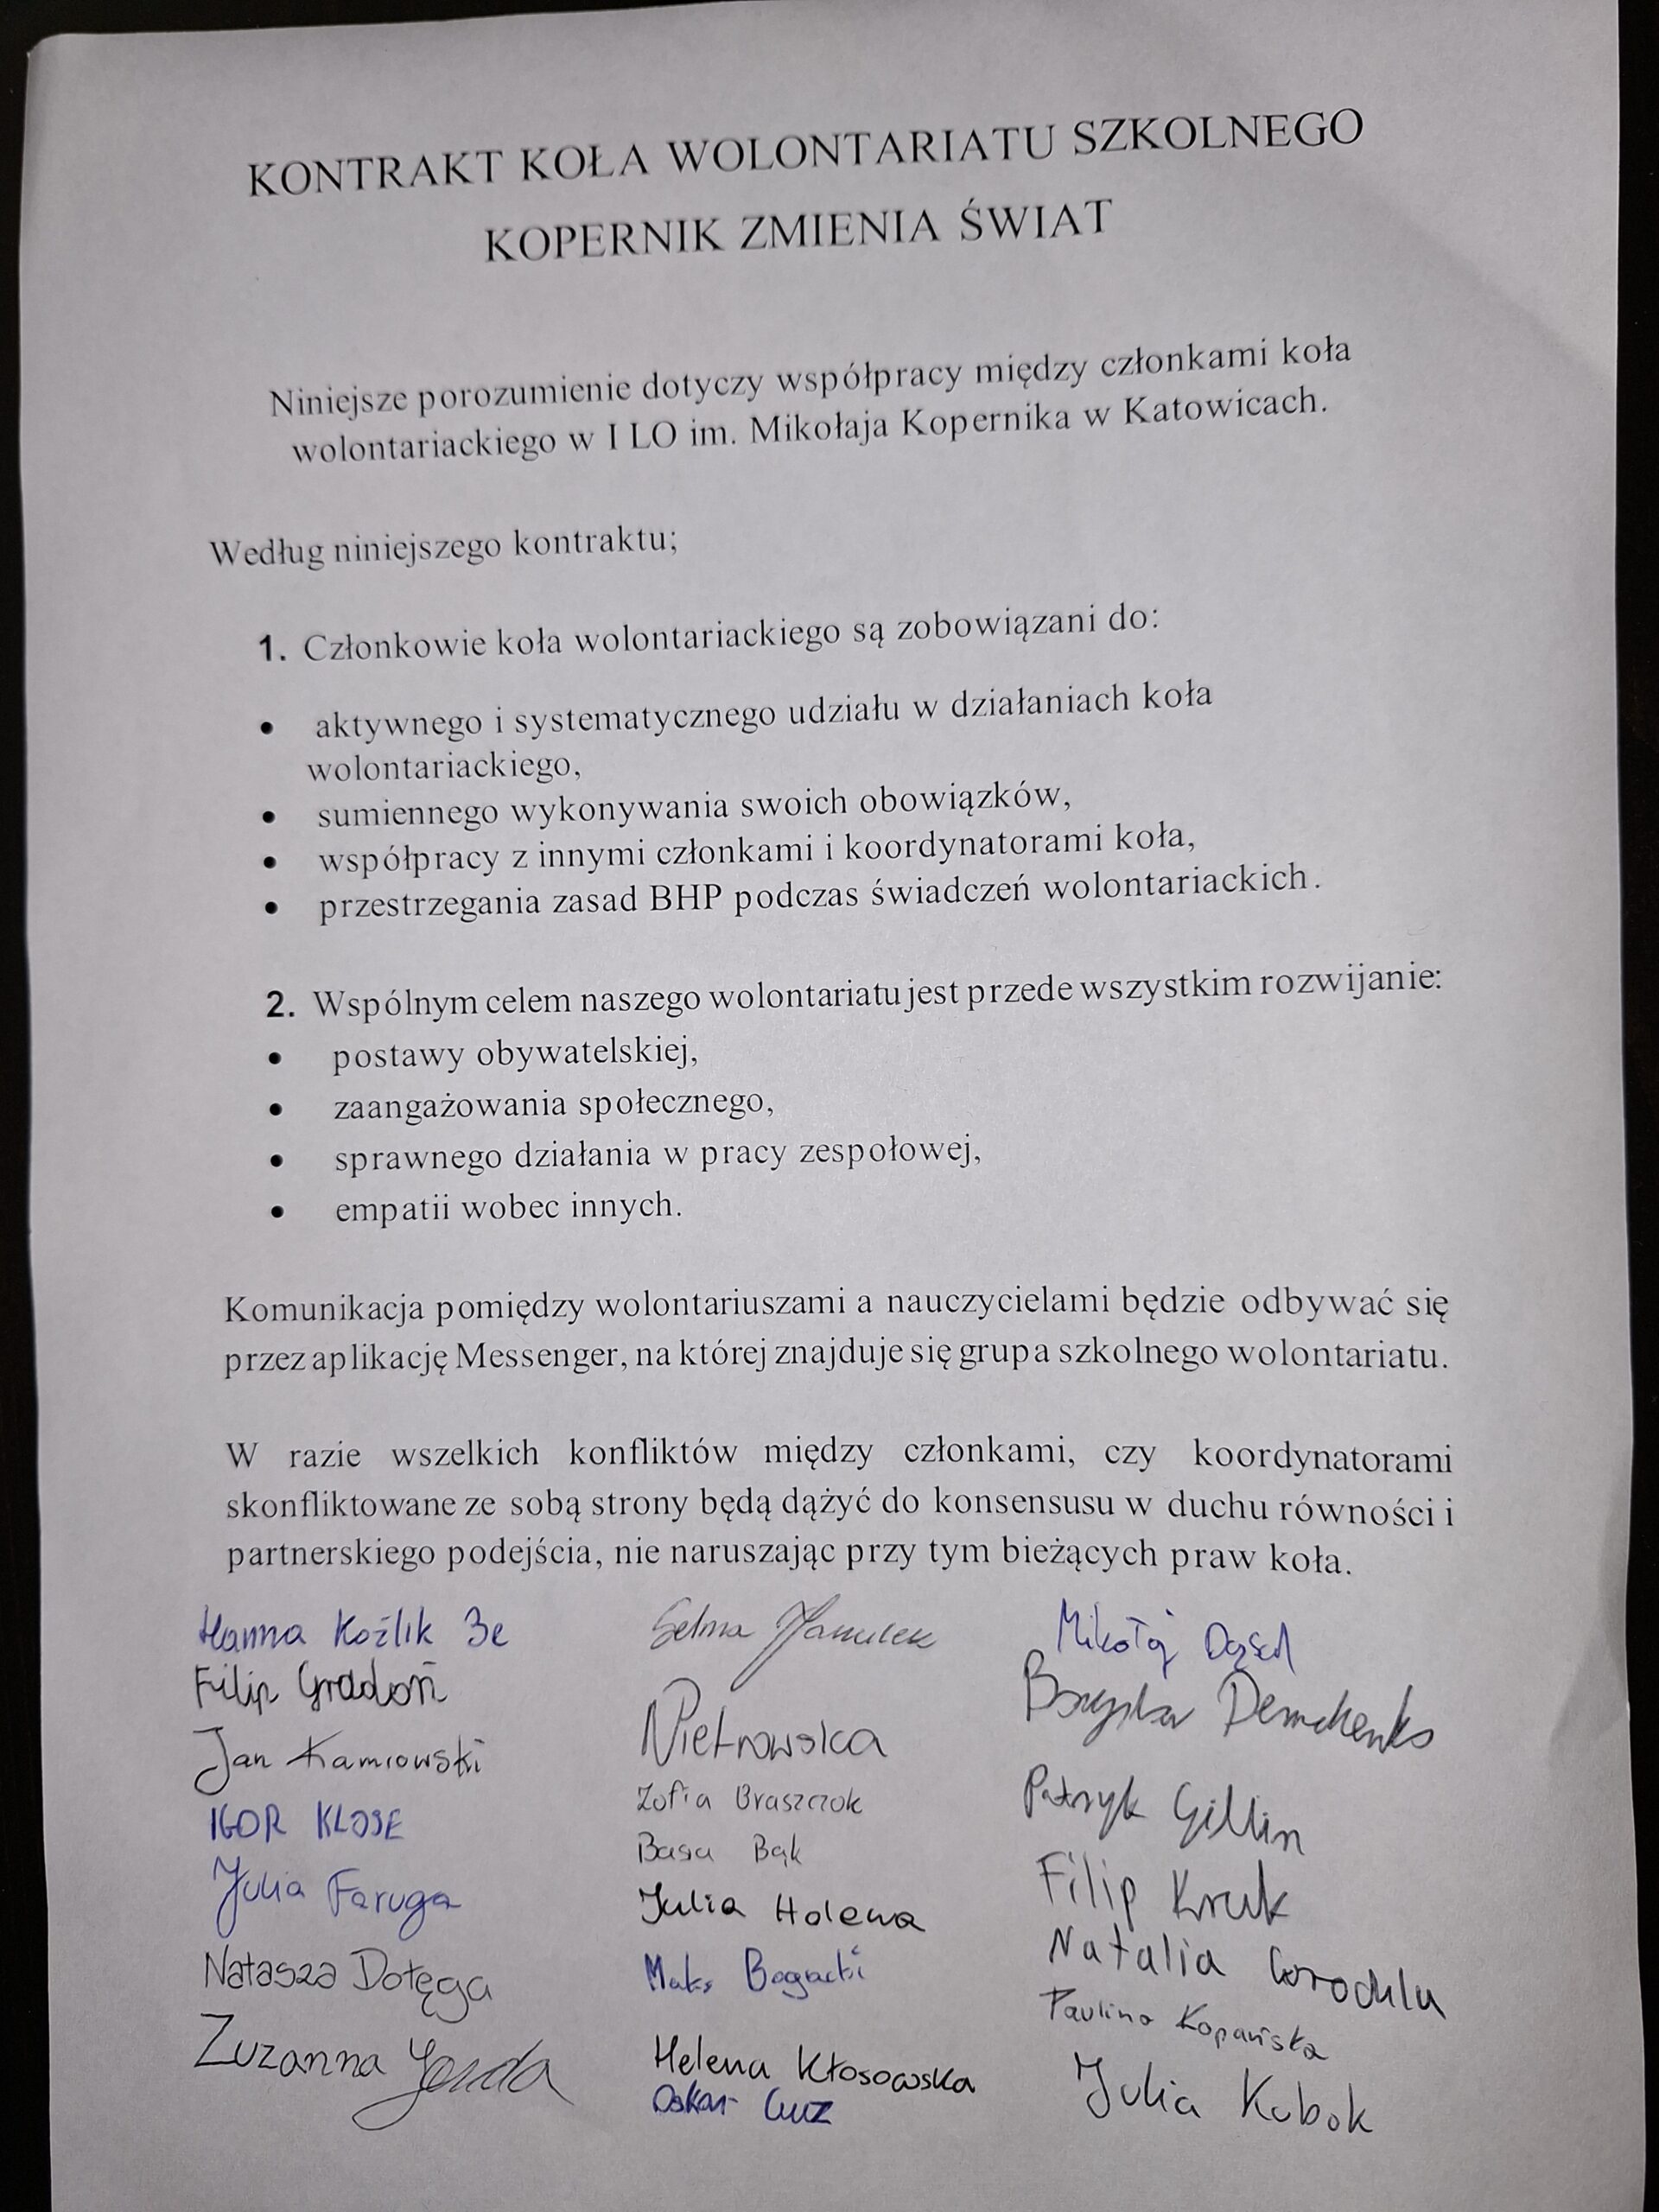 KONTRAKT KOŁA WOLONTARIATU SZKOLNEGO
KOPERNIK ZMIENIA ŚWIAT
Niniejsze porozumienie dotyczy współpracy między członkami koła
wolontariackiego w I LO im. Mikołaja Kopernika w Katowicach.
Według niniejszego kontraktu;
1. Członkowie koła wolontariackiego są zobowiązani do:
• aktywnego i systematycznego udziału w działaniach koła
wolontariackiego,
• sumiennego wykonywania swoich obowiązków,
• współpracy z innymi członkami i koordynatorami koła,
• przestrzegania zasad BHP podczas świadczeń wolontariackich.
2. Wspólnym celem naszego wolontariatu jest przede wszystkim rozwijanie:
• postawy obywatelskiej,
• zaangażowania społecznego,
• sprawnego działania w pracy zespołowej,
• empatii wobec innych.
Komunikacja pomiędzy wolontariuszami a nauczycielami będzie odbywać się
przez aplikację Messenger, na której znajduje się grupa szkolnego wolontariatu.
W razie wszelkich konfliktów między członkami, czy koordynatorami
skonfliktowane ze sobą strony będą dążyć do konsensusu w duchu równości i
partnerskiego podejścia, nie naruszając przy tym bieżących praw koła.
Hanna Koźlik 3e
Filip Gradoń
Jan
IGOR KLOSE
Julia Faruga
Natasza Dołęga
Zuzanna
Selma
Pietrowska
Zofia Braszczok
Basia Bąk
Julia Holewa
Maks Bogacki
Helena Kłosowska
Oskar
Mikołaj
Demchenko
Patryk Gillin
Filip Kruk
Natalia
Paulina Kopańska
Julia Kubok